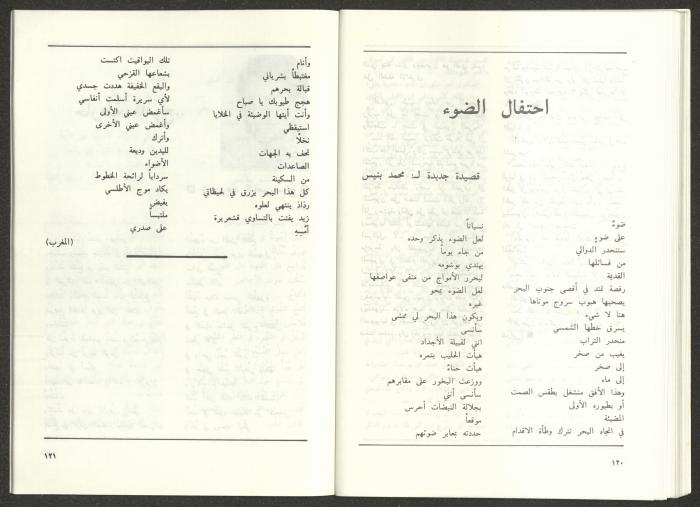 احتفال الضوء
قصيدة جديدة لـ: محمد بنيس
ضوءٌ
على ضوءٍ
ستنحدر الدوالي
من فسائلها
القدية
رقصة تمتد في أقصى جنوب البحر
يصحبها هبوب سروج موتاها
هنا لا شيء
يسرق خطها الشمسي
منحدر التراب
يغيب من صخر
إلى صخر
إلى ماء
وهذا الأفق منشغل بطقس الصمت
أو بطيوره الأولى
المضيئة
في اتجاه البحر تترك وطأة الاقدام
نسياناً
لعل الضوء يذكر وحده
من جاء يوماً
يهتدي بوشومه
ليحرر الأمواج من منفى عواصفها
لعل الضوء يمحو
غيره
ويكون هذا البحر لي ممشى
سأنسى
انني لقبيلة الأجداد
هيأت الحليب بتمره
هيأت حناءً
ووزعت البخور على مقابرهم
سأنسى أنني
بجلالة النبضات أحرس
موقعاً
حددته بمعابر ضوئهم
١٢٠
وأنام
مغتبطاً بشرياني
قبالة بحرهم
هجج طيوبك يا صباح
وأنت أيتها الوضيئة في الخلايا
استيقظي
نخلاً
تحف به الجهات
الصاعدات
من السكينة
كل هذا البحر يزرق في لحيظاتي
رذاذ ينتهي لعلوه
زبد يفتت بالتساوي قشعريرة
أمسِهِ
تلك اليواقيت اكتست
بشعاعها القزحي
والبقع الخفيفة هددت جسدي
لأي سريرة أسلمت أنفاسي
سأغمض عيني الأولى
وأغمض عيني الأخرى
وأترك
لليدين وديعة
الأضواء
سرداباً لرائحة الخطوط
يكاد موج الأطلسي
يفيض
ملتبساً
على صدري
(المغرب)
١٢١